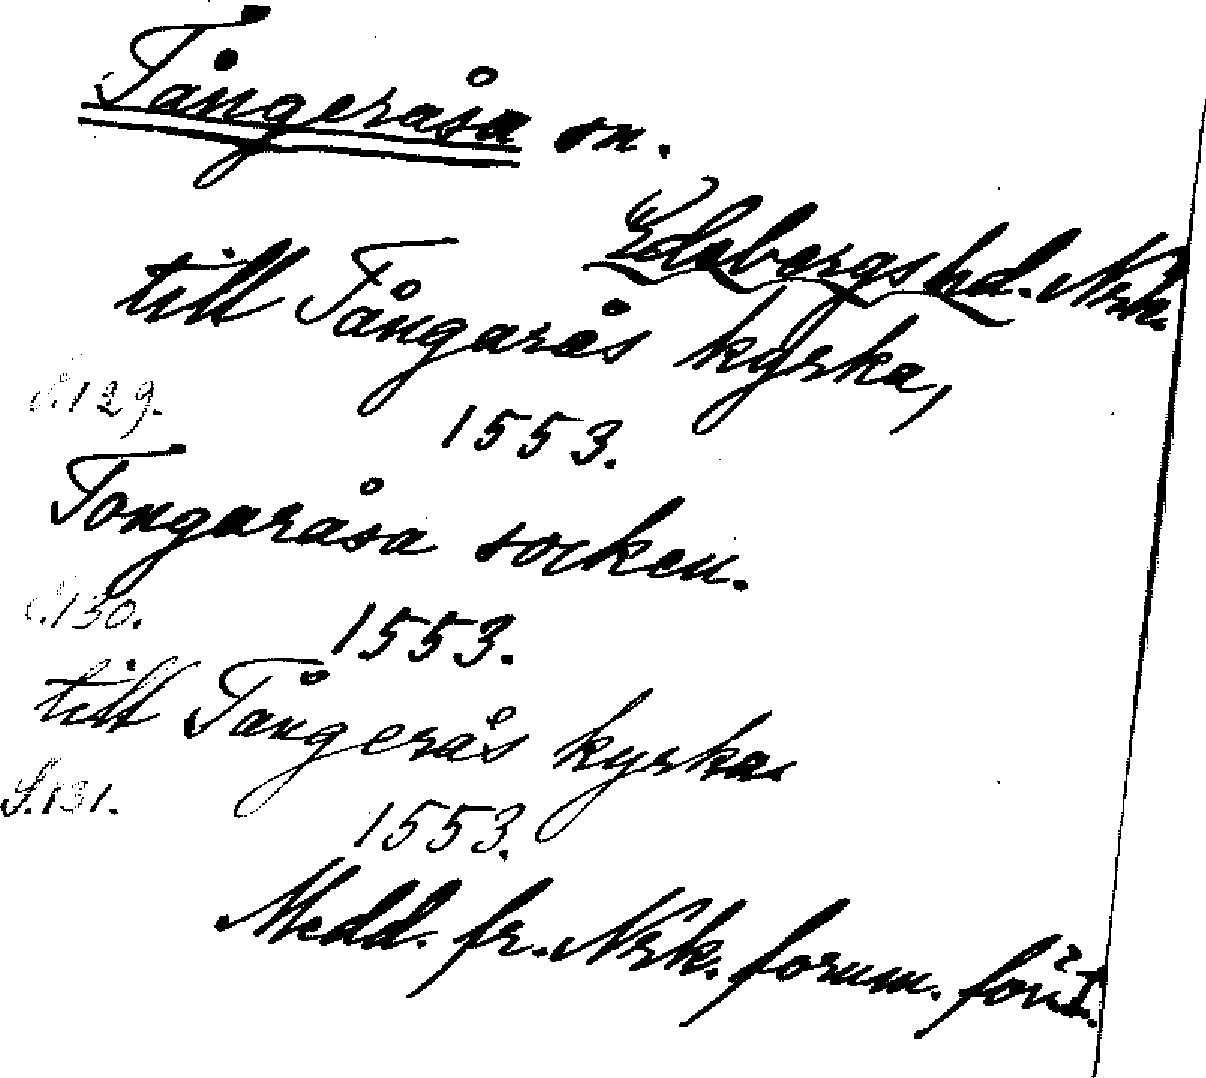 Tångeråsa sn.
Edsbergs hd. Nrk.
till Tångarås kyrka,
S.129.
1553.
Tongaråsa socken.
S.130.
1553.
till Tångerås kyrka.
S.131.
1553.
Medd. fr. Nrk. fornm. för. I.